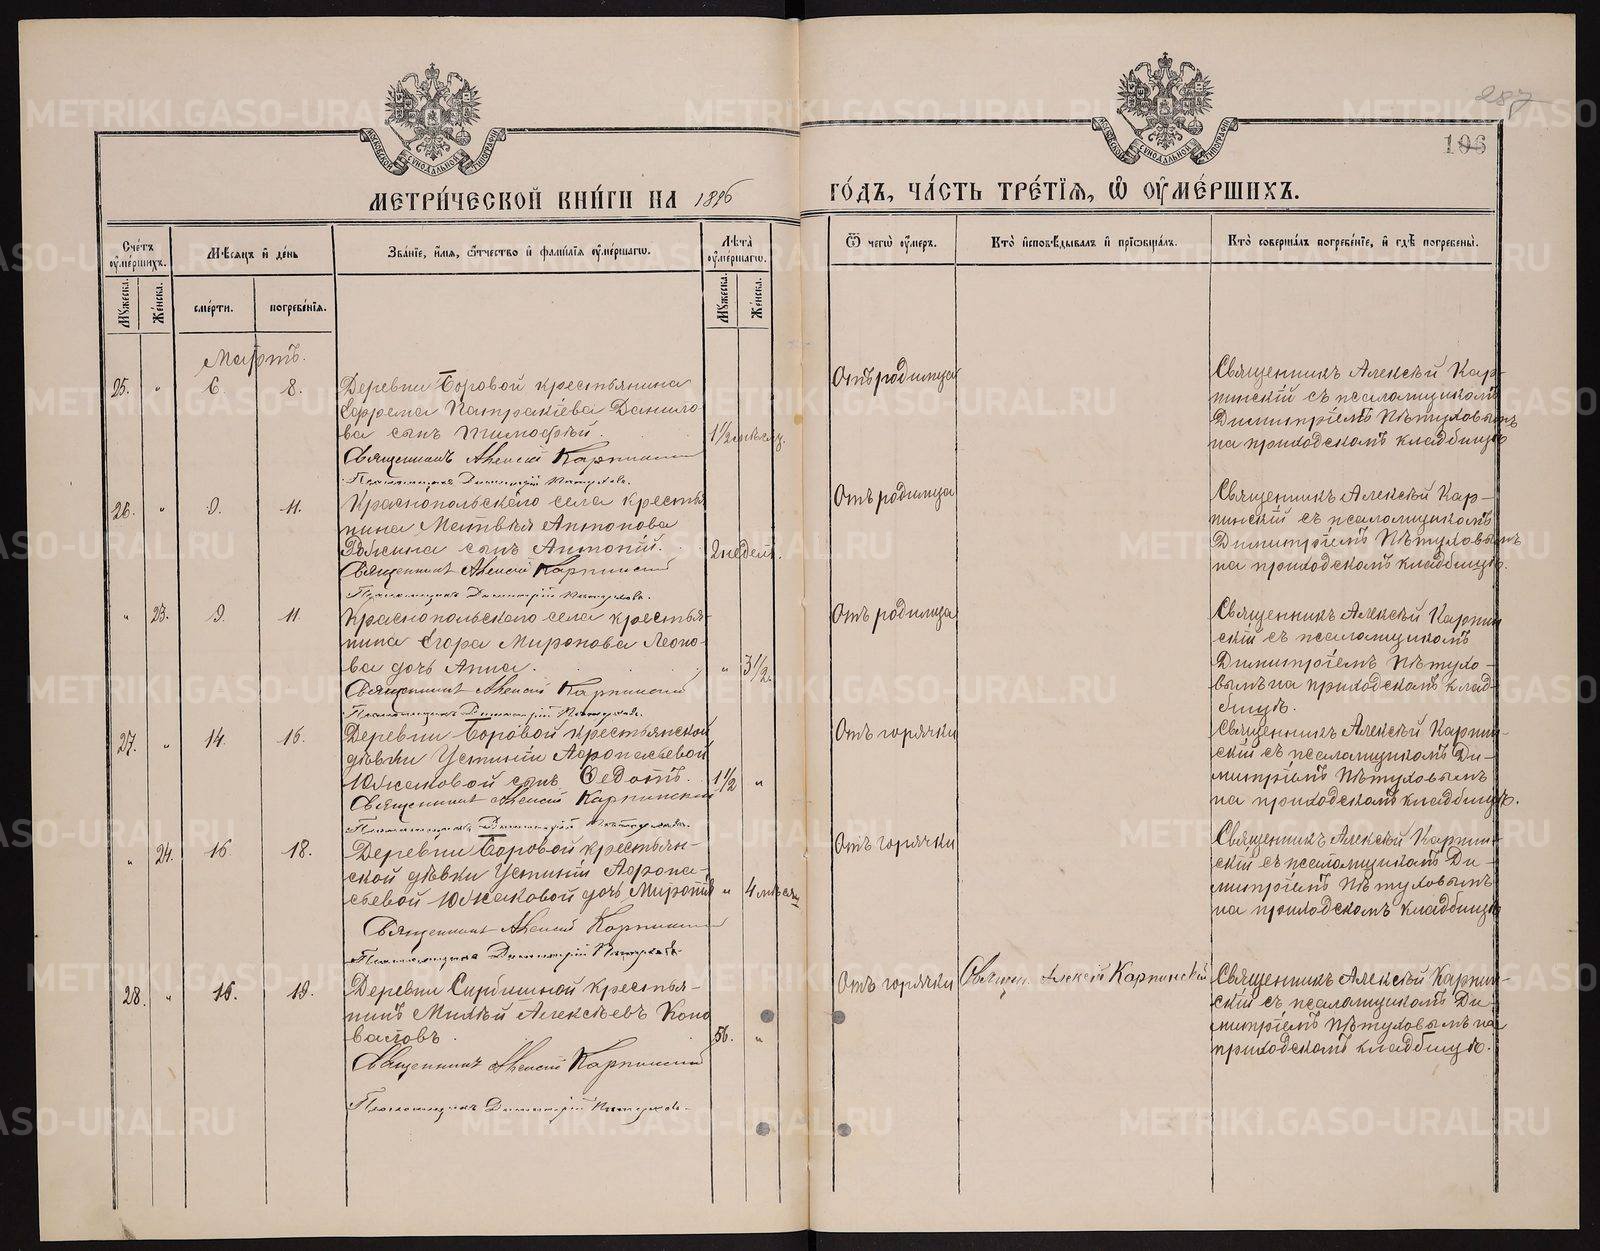 287
106
МОСКОВСКОЙ СѴНОДАЛЬНОЙ ТИПОГРАФІИ
МОСКОВСКОЙ СѴНОДАЛЬНОЙ ТИПОГРАФІИ
МЕТРИ́ЧЕСКОЙ КНИ́ГИ НА 1896 ГО́ДЪ, ЧА́СТЬ ТРЕ́ТІѦ, Ѽ ОУМЕ́РШИХЪ.
Счетъ оумершихъ.
Мужеска.
Женска.
Мѣсяцъ и день
смерти.
погребенія.
Званіе, имя, отчество и фамилія оумершагѡ.
Лѣта оумершагѡ.
Мужеска.
Женска.
Ѿ чегѡ оумеръ.
Кто исповѣдывалъ и пріобщалъ.
Кто совершалъ погребеніе, и гдѣ погребены.
Мартъ.
25. " 6. 8.
Деревни Боровой крестьянина
Ефрема Патракіева Данило-
ва сынъ Тимофѣй.
1½ мѣсяц.
Священникъ Алексій Карпинскій
Псаломщикъ Димитрій Пѣтуховъ.
Отъ родимца
Священникъ Алексѣй Кар-
пинскій съ псаломщикомъ
Димитріемъ Пѣтуховымъ
на приходскомъ кладбищѣ
26. " 9. 11.
Краснопольскаго села крестья
нина Матвѣя Антонова
сынъ Антоній.
2 недель.
Священникъ Алексій Карпинскій
Псаломщикъ Димитрій Пѣтуховъ.
Отъ родимца
Священникъ Алексѣй Кар-
пинскій съ псаломщикомъ
Димитріемъ Пѣтуховымъ
на приходскомъ кладбищѣ.
" 23. 9. 11
Краснопольскаго села крестья-
нина Егора Миронова Леоно-
ва дочь Анна.
" 3½
Священникъ Алексій Карпинскій
Псаломщикъ Димитрій Пѣтуховъ.
Отъ родимца
Священникъ Алексѣй Карпин
скій съ псаломщикомъ
Димитріемъ Пѣтухо-
вымъ на приходскомъ клад-
бищѣ.
27. " 14. 16.
Деревни Боровой крестьянской
дѣвки Устиніи Афонасьевой
Южаковой сынъ Ѳедотъ.
1½ "
Священникъ Алексій Карпинскій
Псаломщикъ Димитрій Пѣтуховъ.
Отъ горячки
Священникъ Алексѣй Карпин-
скій съ псаломщикомъ Ди-
митріемъ Пѣтуховымъ
на приходскомъ кладбищѣ.
" 24. 16. 18.
Деревни Боровой крестьян-
ской дѣвки Устиніи Афона-
сьевой Южаковой дочь
" 4 мѣсяц
Священникъ Алексій Карпинскій
Псаломщикъ Димитрій Пѣтуховъ
Отъ горячки
Священникъ Алексѣй Карпин-
скій съ псаломщикомъ Ди-
митріемъ Пѣтуховымъ
на приходскомъ кладбищѣ
28. " 16. 19.
Деревни крестья-
нинъ Алексѣевъ Коно
валовъ.
56. "
Священникъ Алексій Карпинскій
Псаломщикъ Димитрій Пѣтуховъ.
Отъ горячки
Священ. Алексій Карпинскій
Священникъ Алексѣй Карпин-
скій съ псаломщикомъ Ди-
митріемъ Пѣтуховымъ на
приходскомъ кладбищѣ.
METRIKI.GASO-URAL.RU